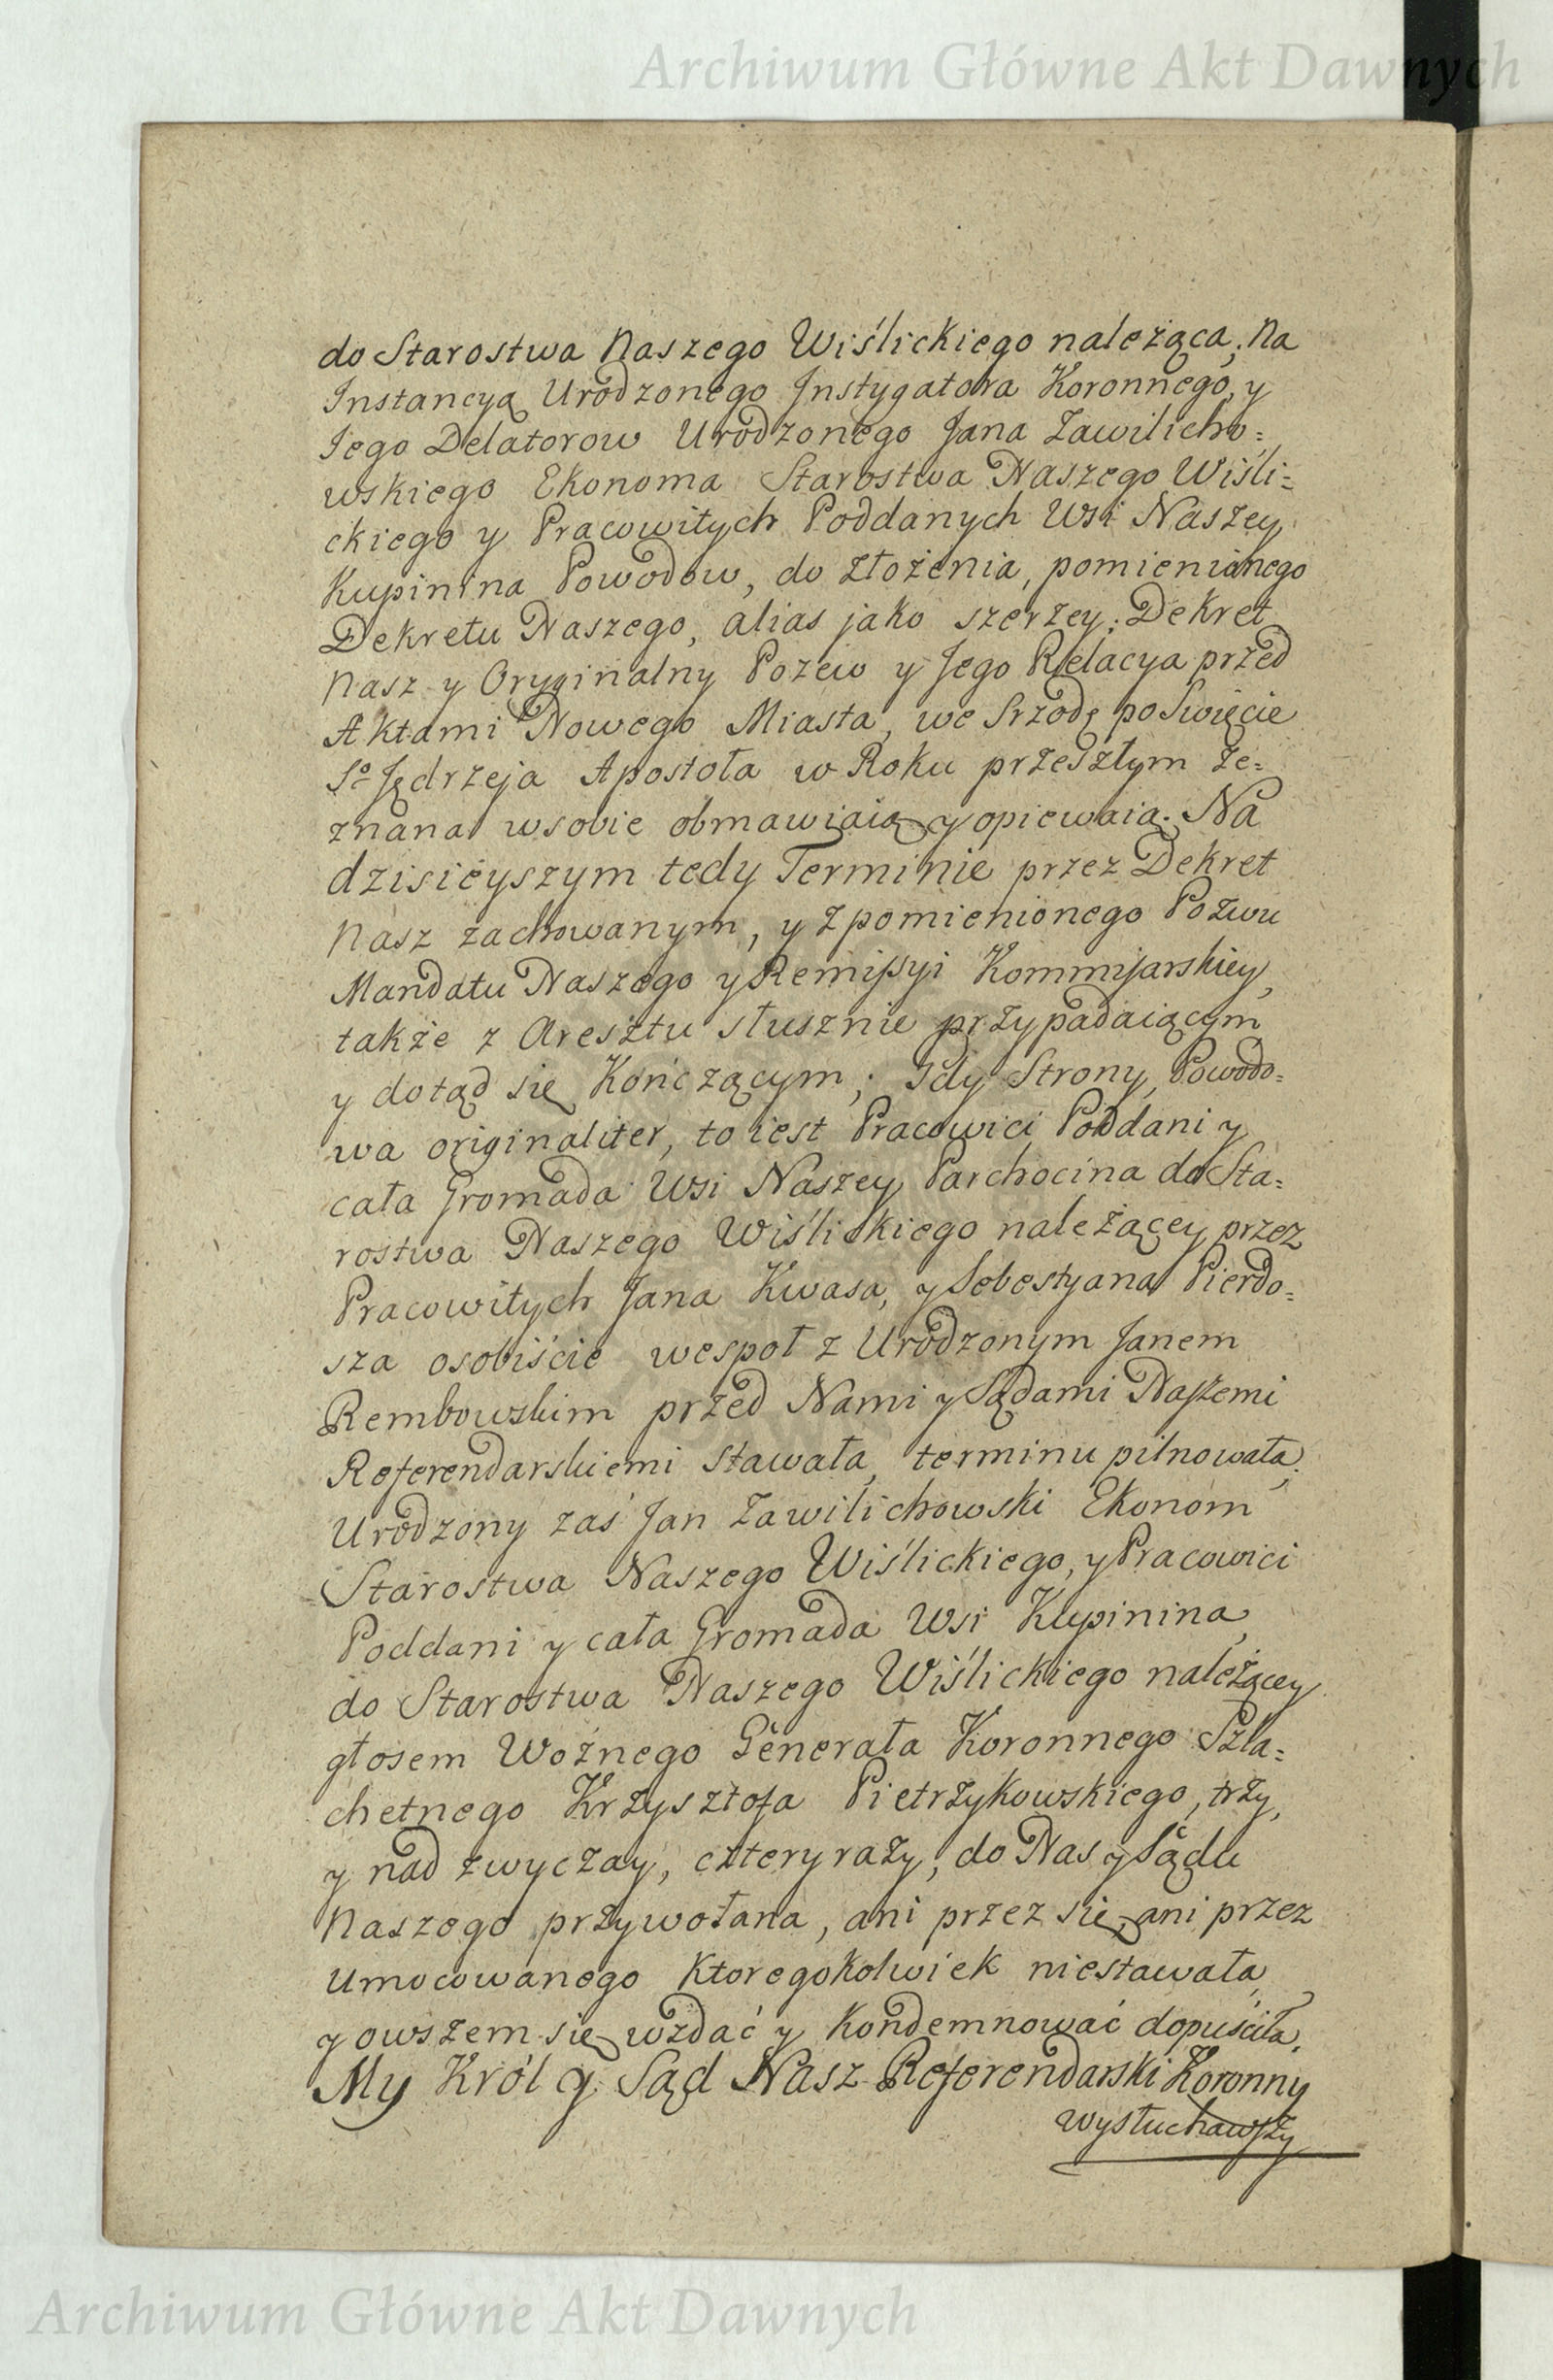 Archiwum Główne Akt Dawnych
do Starostwa Naszego Wiślickiego należąca, Na
Instancyą Urodzonego Instygatora Koronnego, y
Jego Delatorow Urodzonego Jana Zawilicho=
wskiego Ekonoma Starostwa Naszego Wiśli=
ckiego y Pracowitych Poddanych Wsi Naszey
Kupinina Powodow, do złożenia, pomienionego
Dekretu Naszego, alias jako szerzey: Dekret
Nasz y Oryginalny Pozew y Jego Relacya przed
Aktami Nowego Miasta, we Srzodę po Swięcie
So Jędrzeja Apostoła w Roku przeszłym ze=
znana w sobie obmawiaią y opiewaią. Na
dzisieyszym tedy Terminie przez Dekret
Nasz zachowanym, y z pomienionego Pozwu
Mandatu Naszego y Remissyi Kommisarskiey,
także z Aresztu słusznie przypadaiącym
y dotąd się Kończącym; Gdy Strony Powodo=
wa originaliter, to iest Pracowici Poddani y
cała Gromada Wsi Naszey Parchocina do Sta=
rostwa Naszego Wiślickiego należącey przez
Pracowitych Jana Kwasa, y Sebestyana Pierdo=
sza osobiście wespoł z Urodzonym Janem
Rembowskim przed Nami y Sądami Naszemi
Referendarskiemi stawała, terminu pilnowała;
Urodzony zaś Jan Zawilichowski Ekonom
Starostwa Naszego Wiślickiego, y Pracowici
Poddani y cała Gromada Wsi Kupinina,
do Starostwa Naszego Wiślickiego należącey
głosem Woźnego Generała Koronnego Szla=
chetnego Krzysztofa Pietrzykowskiego, trzy,
y nad zwyczay, cztery razy, do Nas y Sądu
Naszego przywołana, ani przez się, ani przez
Umocowanego Ktoregokolwiek niestawała,
y owszem się wzdać y Kondemnować dopuściła,
My Król y Sąd Nasz Referendarski Koronny
wysłuchawszy
Archiwum Główne Akt Dawnych